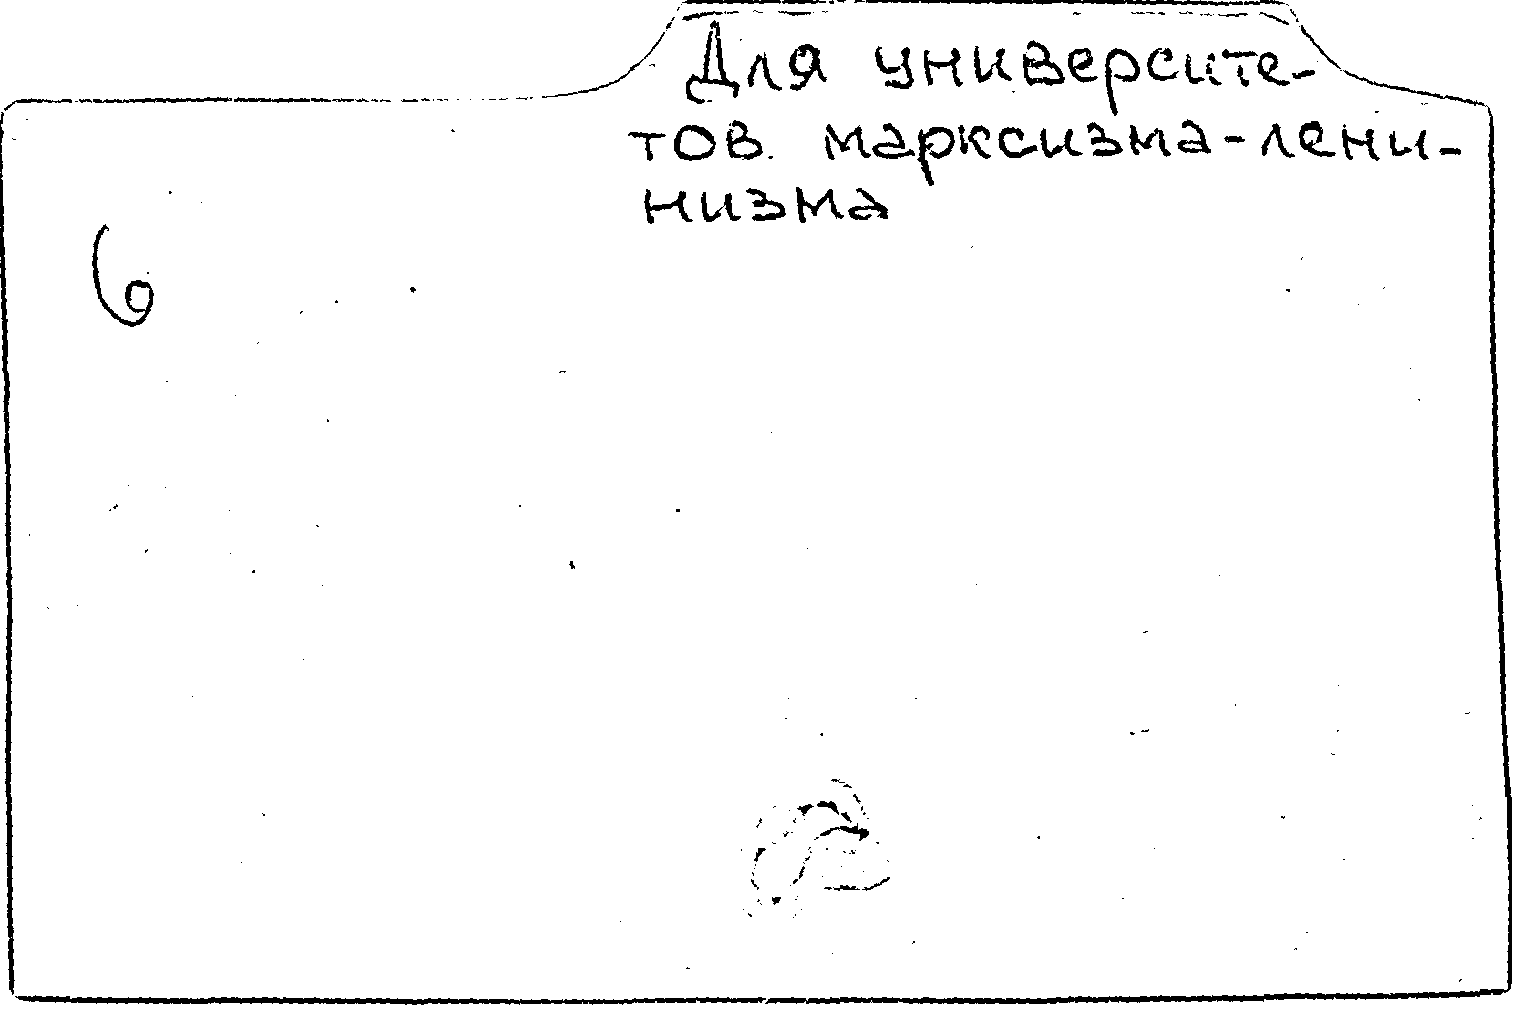 Для университе-
тов марксизма-лени-
низма
6